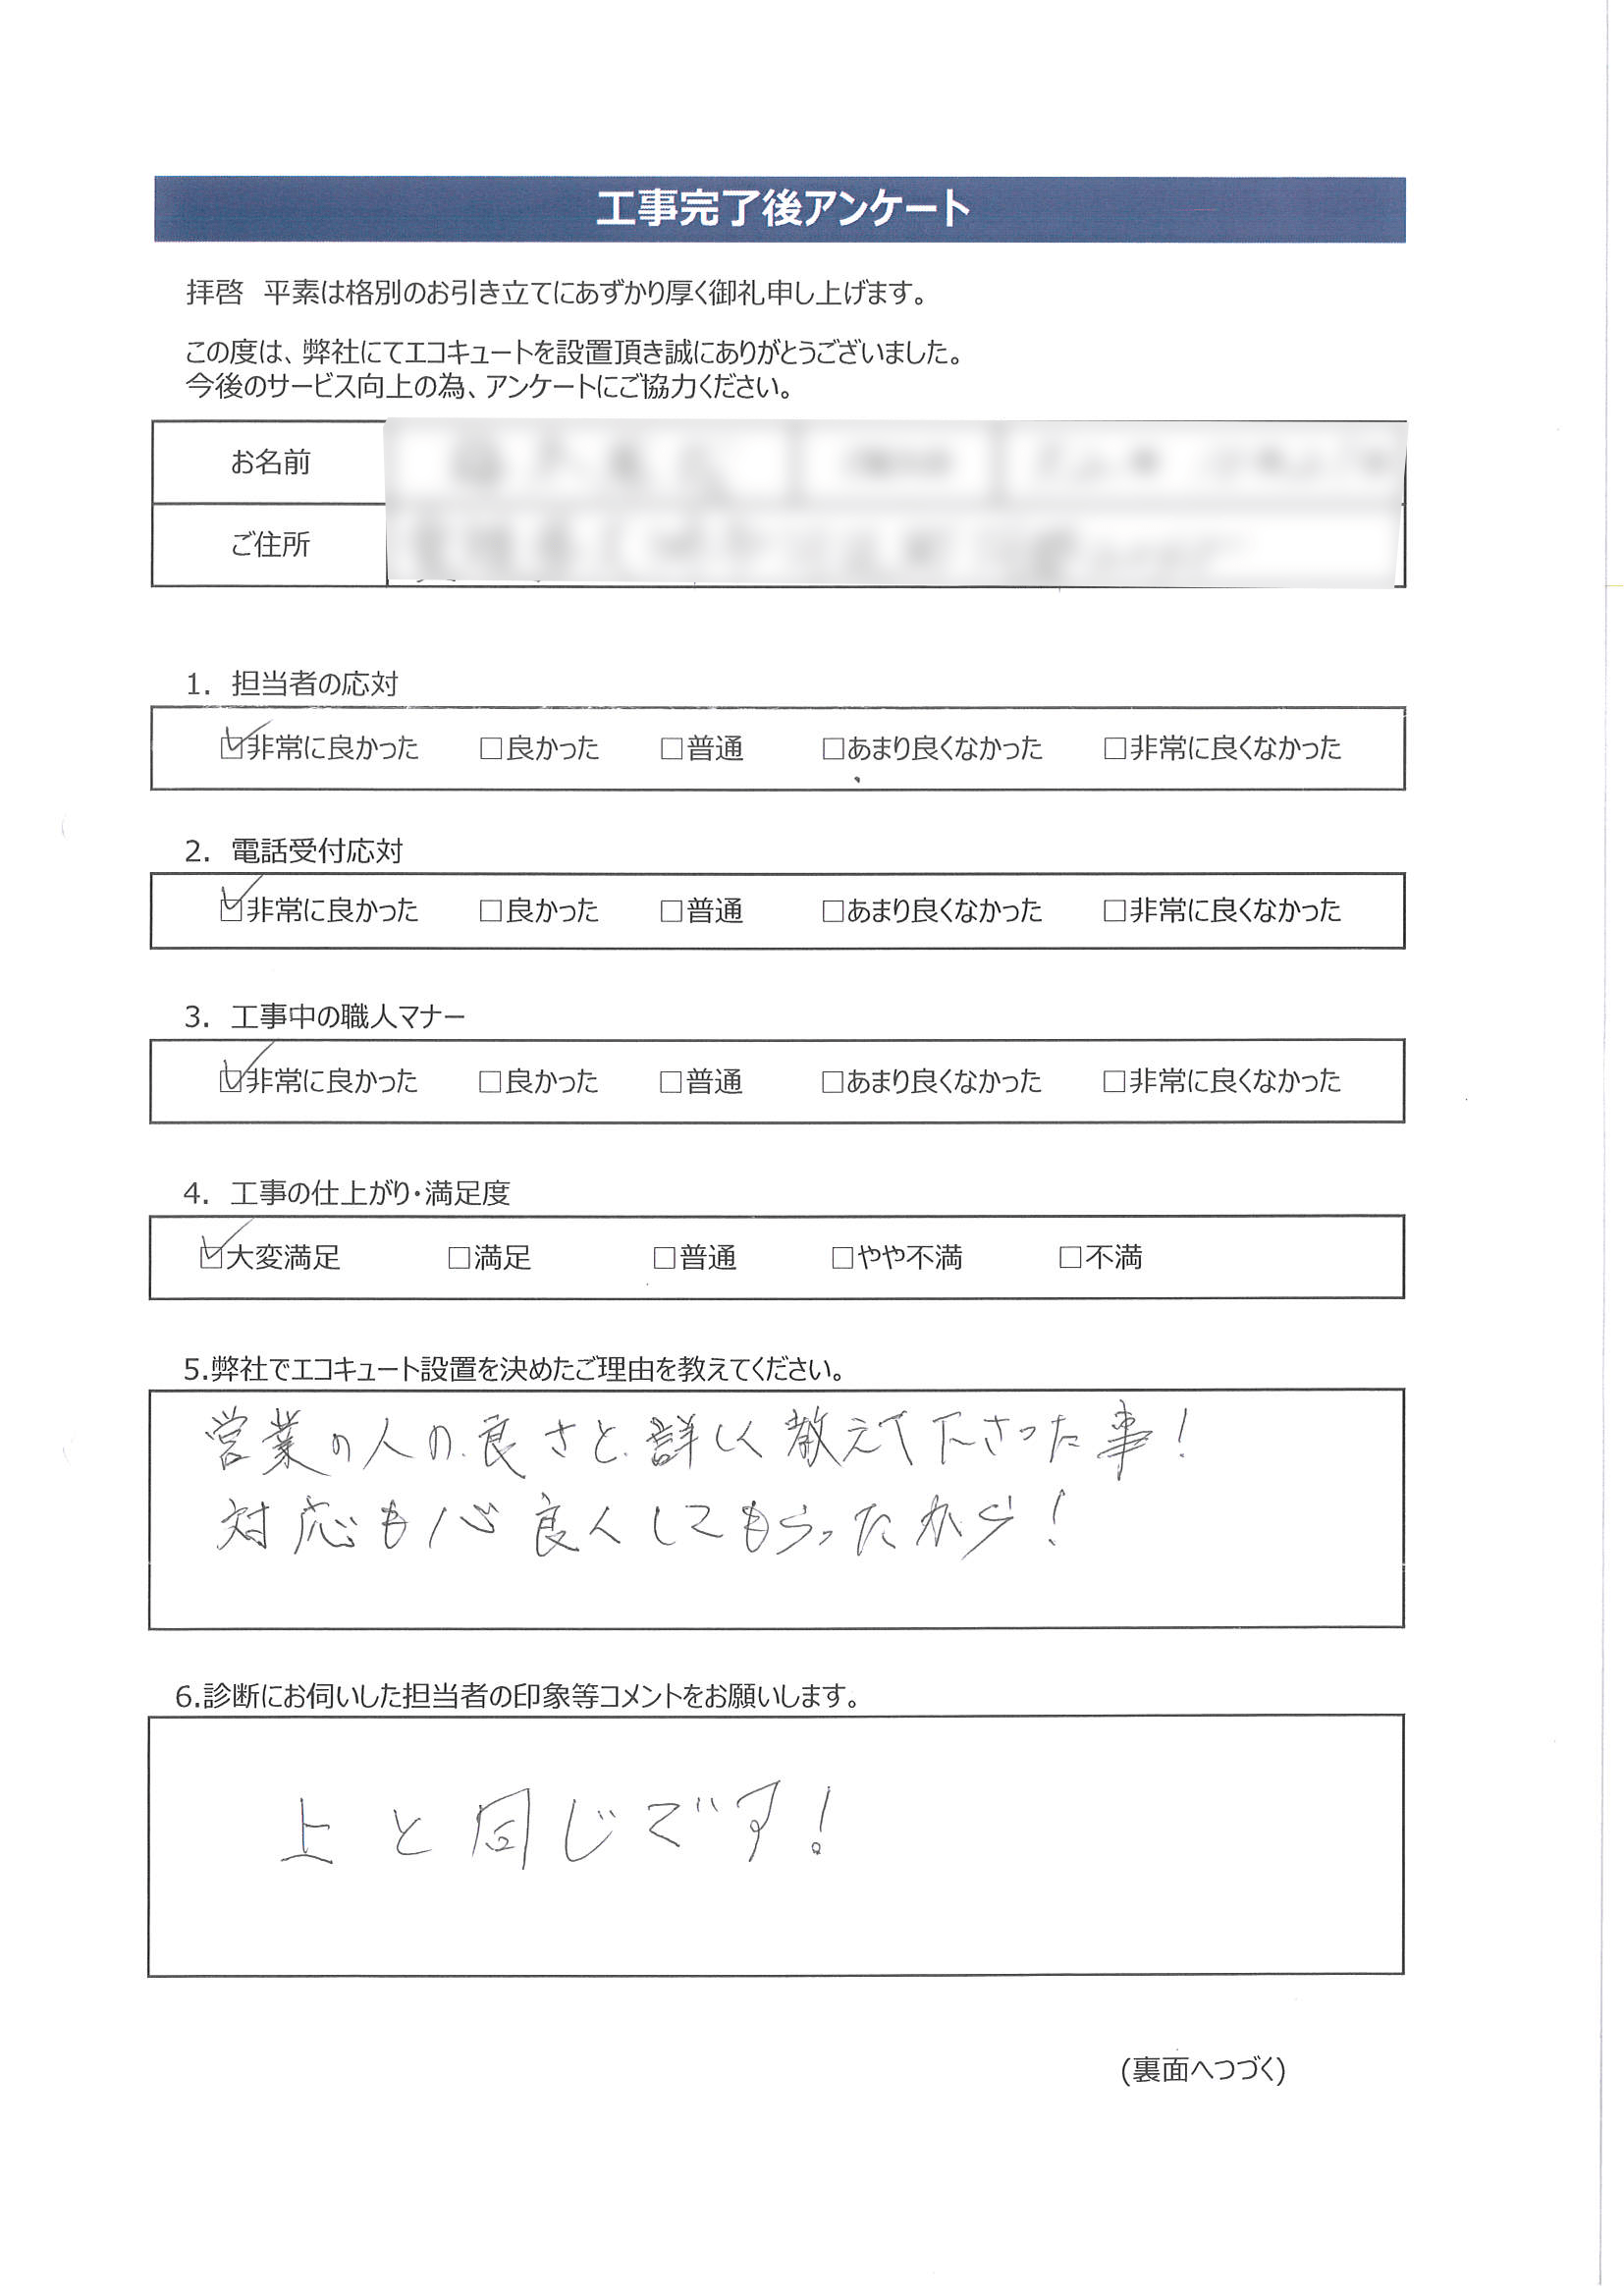 工事完了後アンケート
拝啓　平素は格別のお引き立てにあずかり厚く御礼申し上げます。
この度は、弊社にてエコキュートを設置頂き誠にありがとうございました。
今後のサービス向上の為、アンケートにご協力ください。
お名前
ご住所
1. 担当者の応対
☑非常に良かった　□良かった　□普通　□あまり良くなかった　□非常に良くなかった
2. 電話受付応対
☑非常に良かった　□良かった　□普通　□あまり良くなかった　□非常に良くなかった
3. 工事中の職人マナー
☑非常に良かった　□良かった　□普通　□あまり良くなかった　□非常に良くなかった
4. 工事の仕上がり・満足度
☑大変満足　□満足　□普通　□やや不満　□不満
5.弊社でエコキュート設置を決めたご理由を教えてください。
営業の人の良さと詳しく教えて下さった事！
対応も心良くしてもらったから！
6.診断にお伺いした担当者の印象等コメントをお願いします。
上と同じです！
(裏面へつづく)